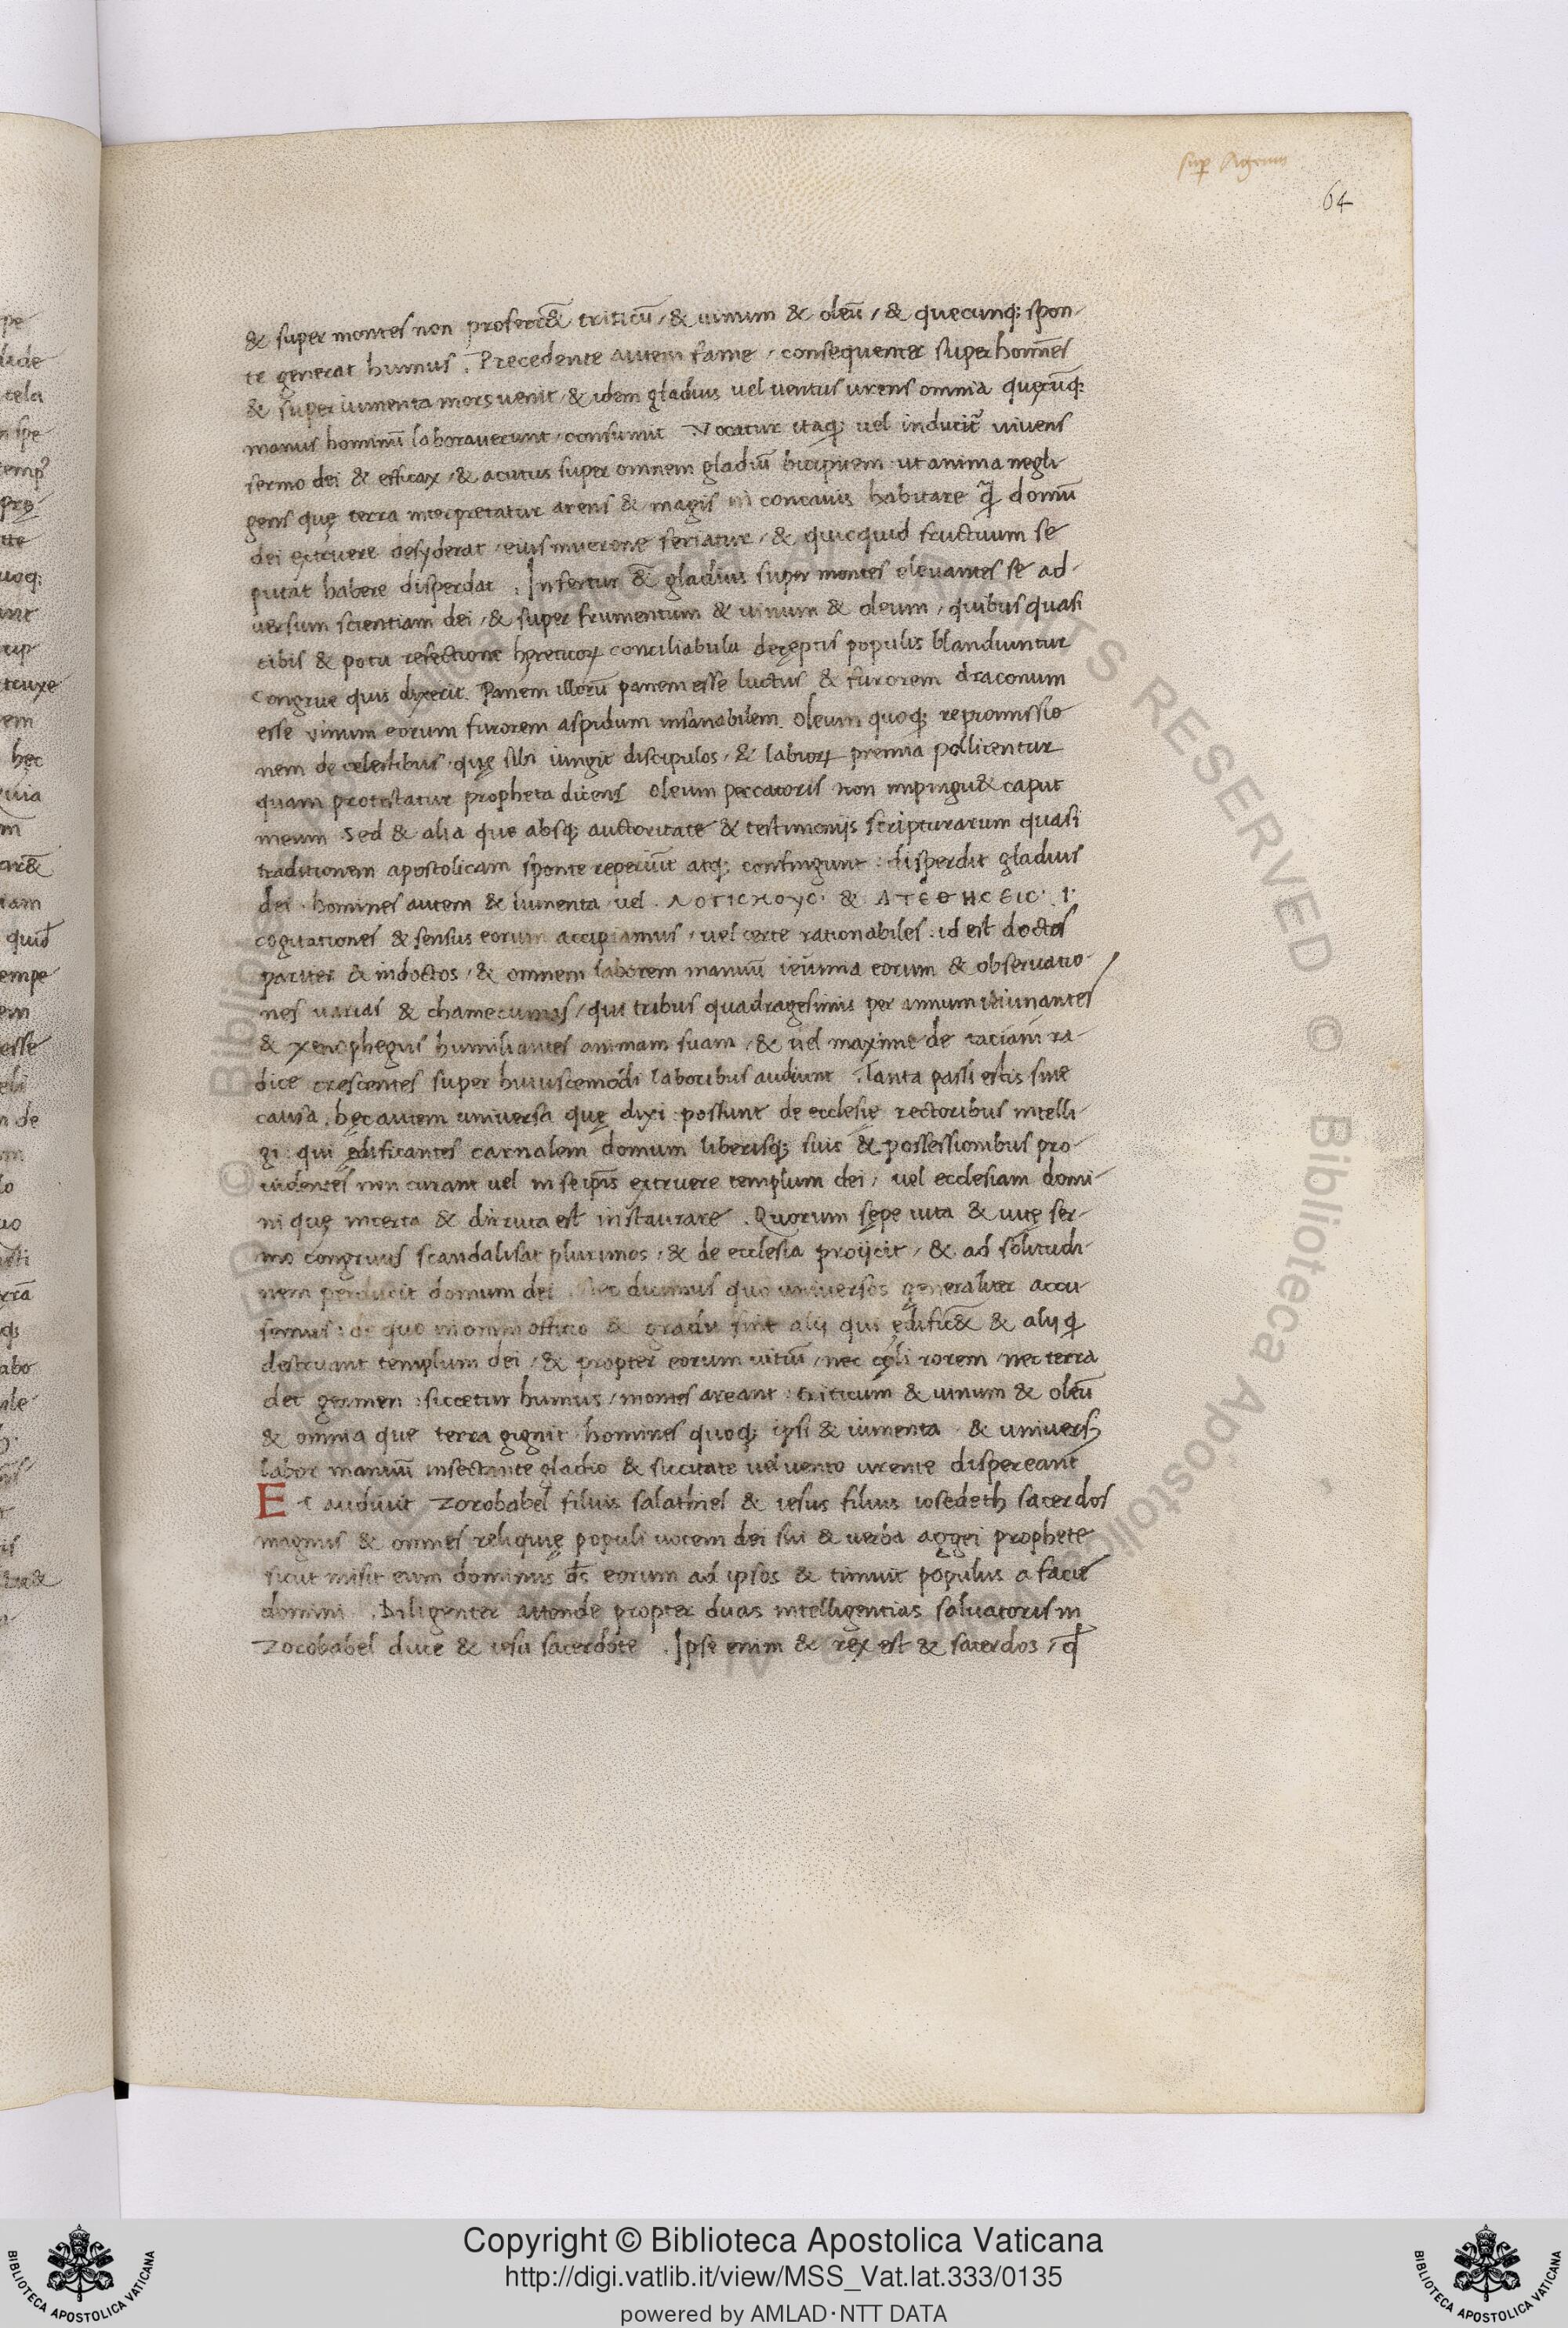 sup Ageum
64
& super montes non proferēt& triticū / & uinum & oleū / & quecunq; spon-
te generat humus . Precedente autem fame / consequenter super homīes
& super iumenta mors uenit / & idem gladius uel uentus urens omnia quęcūq;
manus hominū laborauerunt / consumit Vocatur itaq; uel inducit᷑ uiuens
sermo dei & efficax / & acutus super omnem gladiū bicipitem : ut anima negli-
gens quę terra interpretatur arens & magis in concauis habitare q̄ domū
dei extruere desyderat / eius mucrone feriatur / & quicquid fructuum se
putat habere disperdat . Infertur & gladius super montes eleuantes se ad-
uersum scientiam dei / & super frumentum & uinum & oleum / quibus quasi
cibis & potu refectione hęreticoꝝ conciliabula deceptis populis blandiuntur
Congrue quis dixerit . Panem illorū panem esse luctus & furorem draconum
esse uinum eorum furorem aspidum insanabilem . Oleum quoq; repromissio
nem de celestibus / quę sibi iungit discipulos / & laboꝝ premia pollicentur
quam protestatur propheta dicens Oleum peccatoris non impingu& caput
meum Sed & alia que absq; auctoritate & testimonijs scripturarum quasi
traditionem apostolicam sponte reperiūt atq; confingunt : disperdit gladius
dei . homines autem & iumenta uel . ΛΟΓΙCΚΟΥC . & ΑΤΕΘΗCΕΙC . i .
cogitationes & sensus eorum accipiamus / uel certe rationabiles . id est doctos
pariter & indoctos / & omnem laborem manuū ieiunia eorum & obseruatio-
nes uarias & chamecunias / qui tribus quadragesimis per annum ieiunantes
& xerophegiis humiliantes animam suam / & uel maxime de taciani ra-
dice crescentes super huiuscemodi laboribus audiunt . Tanta passi estis sine
causa . hęc autem uniuersa quę dixi possunt de ecclesię rectoribus intelli-
gi : qui ędificantes carnalem domum liberisq; suis & possessionibus pro-
uidentes non curant uel in se ip̄is extruere templum dei / uel ecclesiam domi-
ni quę incerta & diruta est instaurare . Quorum sępe uita & uitę ser-
mo congruus scandalisat plurimos / & de ecclesia proijcit / & ad solitudi-
nem perducit domum dei . Nec dicimus quo uniuersos generaliter accu-
semus : de quo in omni officio & gradu sint alij qui ędific& & alij q
destruant templum dei / & propter eorum uitiū / nec cęli rorem / nec terra
det germen : siccetur humus / montes areant : triticum & uinum & oleū
& omnia que terra gignit homines quoq; ipsi & iumenta & uniuersꝫ
labor manuū insectante gladio & siccitate uel uento urente dispereant
Et audiuit Zorobabel filius salathiel & iesus filius iosedech sacerdos
magnus & omnes reliquię populi uocem dei sui & uerba aggei prophete
sicut misit eum dominus ds eorum ad ipsos & timuit populus a facie
domini . Diligenter attende propter duas intelligentias saluatoris in
Zorobabel duce & iesu sacerdote . Ipse enim & rex est & sacerdos / q
Copyright © Biblioteca Apostolica Vaticana
http://digi.vatlib.it/view/MSS_Vat.lat.333/0135
powered by AMLAD·NTT DATA
BIBLIOTECA APOSTOLICA VATICANA
BIBLIOTECA APOSTOLICA VATICANA